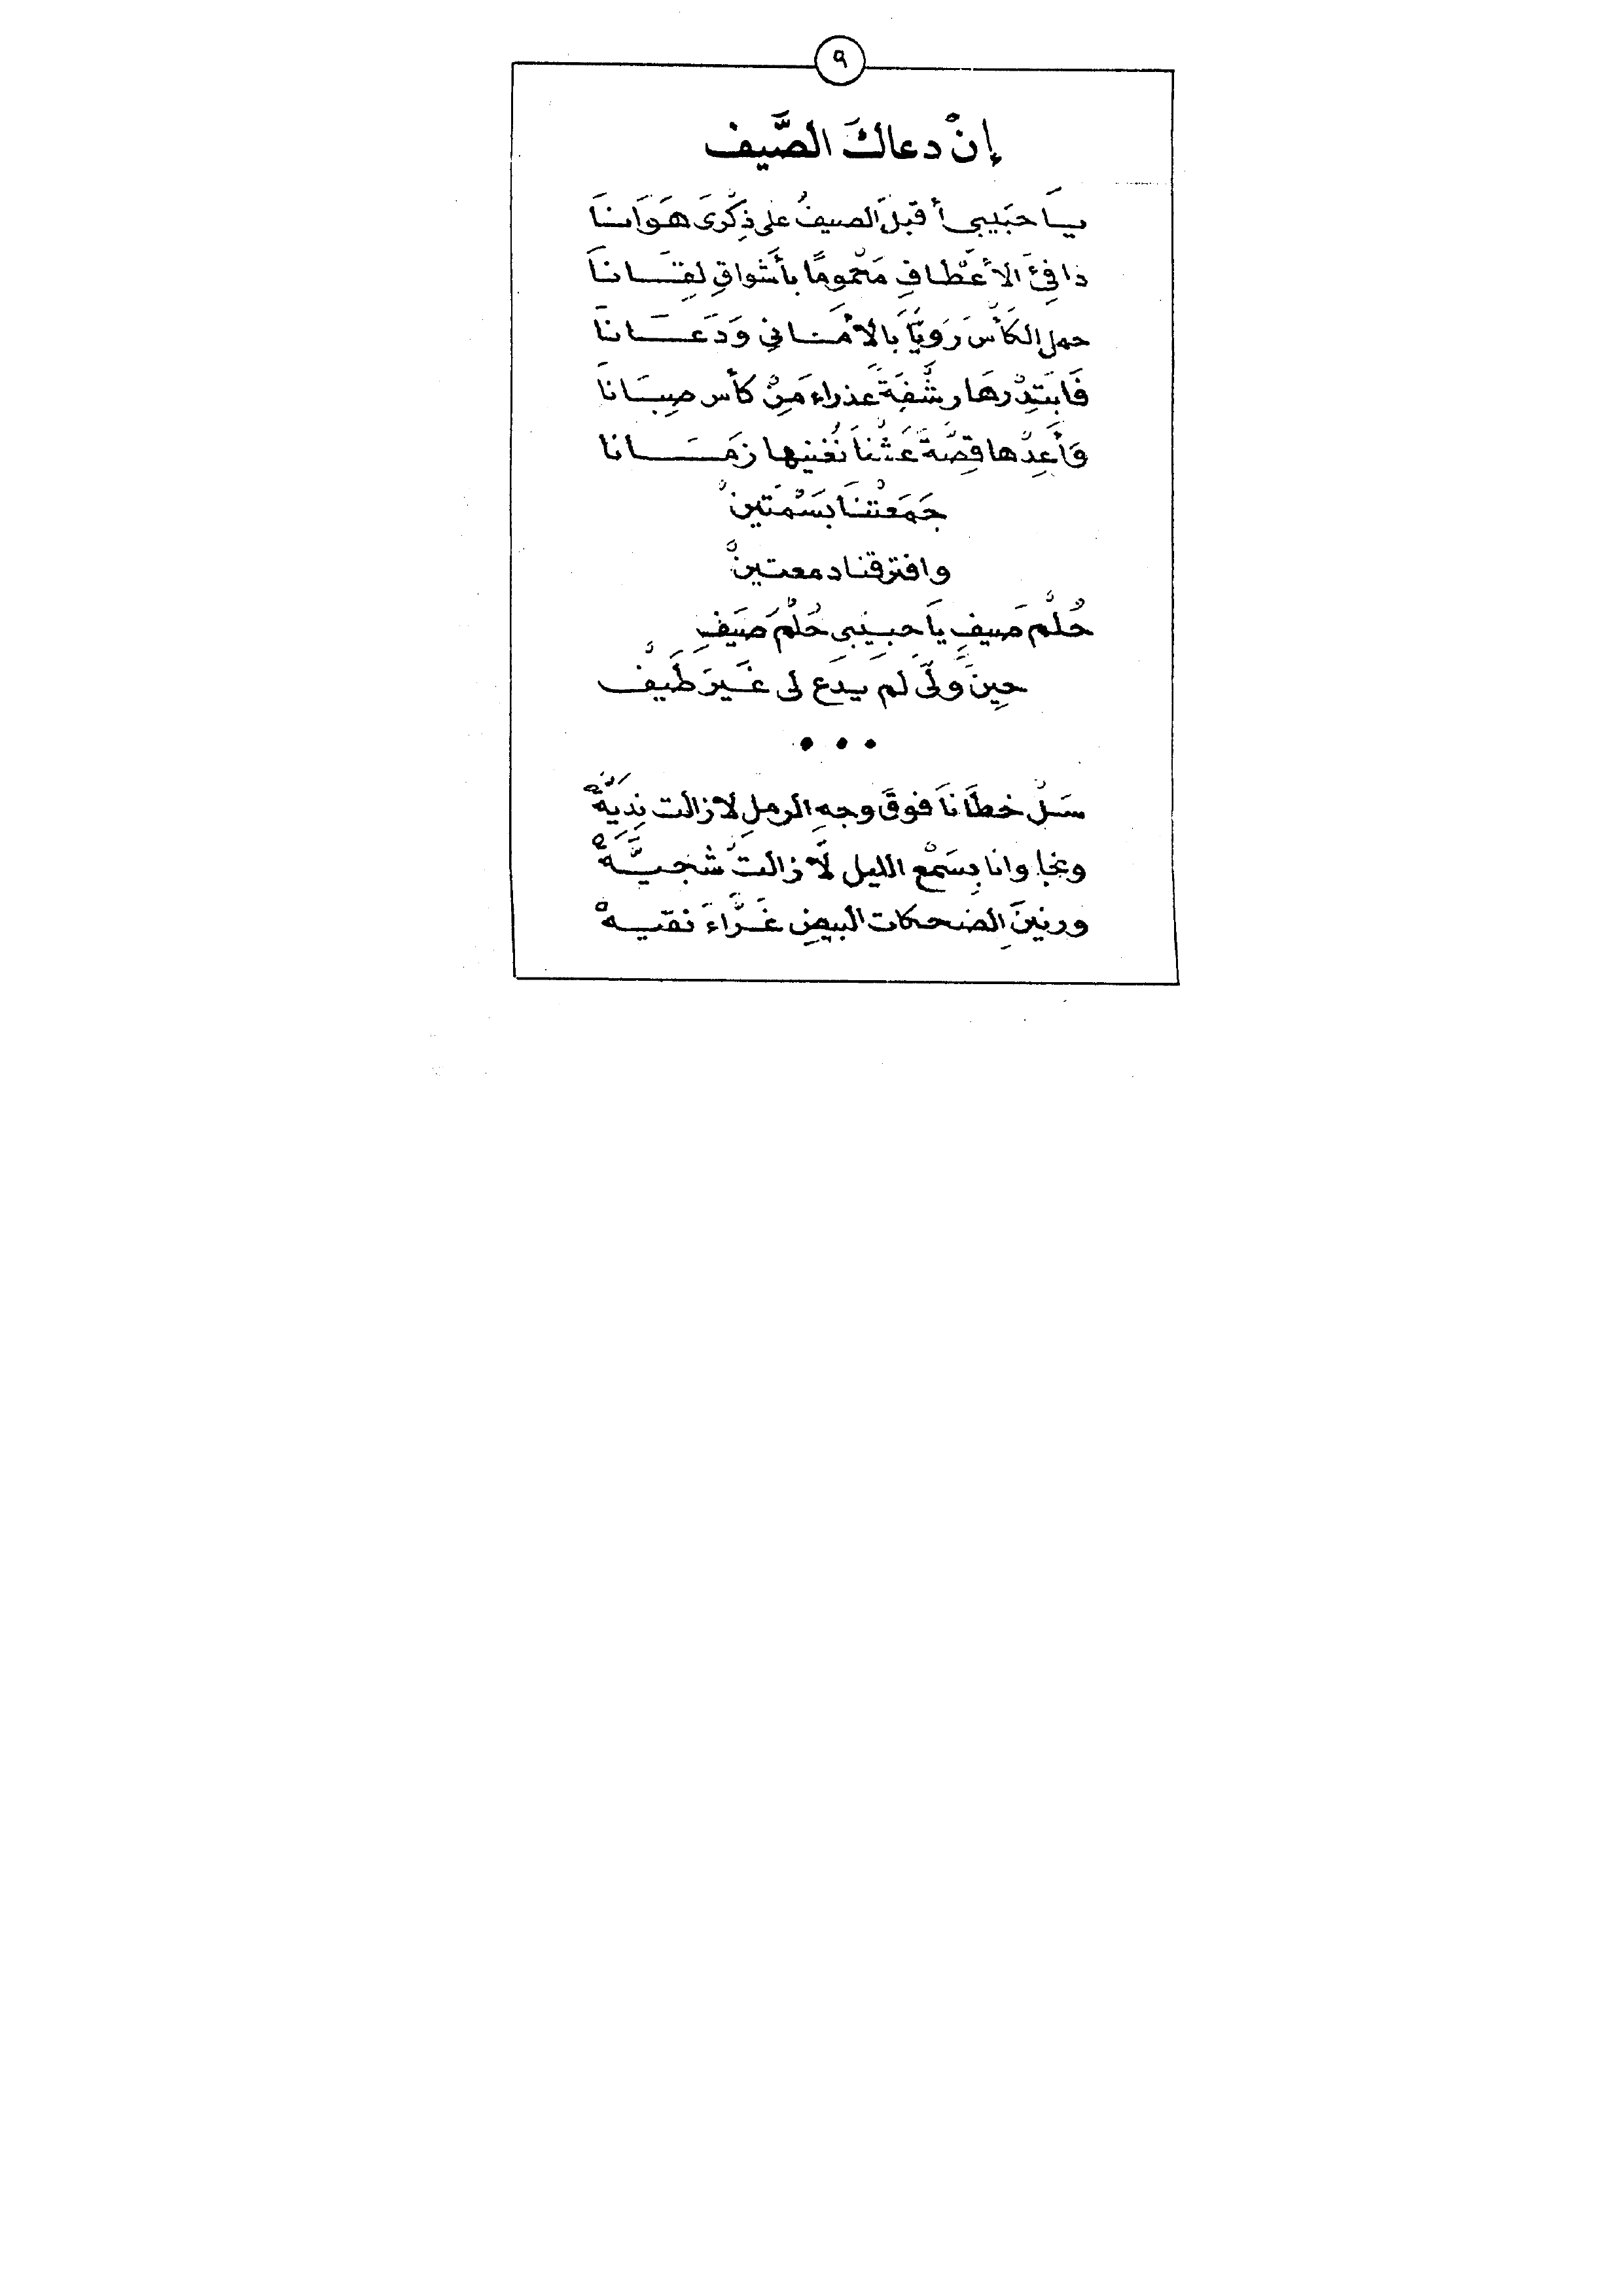 ٩
إنْ دعاكَ الصَّيف
يَا حبَيبي أقبلَ الصيفُ على ذِكْرىَ هَوَانَا
دافِئَ الأعْطافِ مَحْمومًا بأَشواقِ لِقَانَا
حمل الكَأْسَ رَوِيًّا بالأمَاني وَدَعَانَا
فَابتَدِرْهَا رشْفَةً عذراء مَِنْ كأس صِبَانَا
وَأَعِدْها قِصَّةً عَشْنَا نُغنيها زمَانا
جَمَعتْنَا بَسْمَتَينْ
وافترقنا دمعتينْ
حُلْم صَيفٍ يَا حبِيبي حُلْمَ صَيَفِ
حِينَ ولَّى لم يدَع لى غَيرَ طَيفْ
• • •
سَلْ خطَانَا فوقَ وجهِ الرملِ لازالت نِديَّهْ
ونجاوانا بِسَمْع الليل لَازالتْ شَجيَّهْ
ورنينَ الضحكات البيضِ غَرَّاءَ نقيهْ